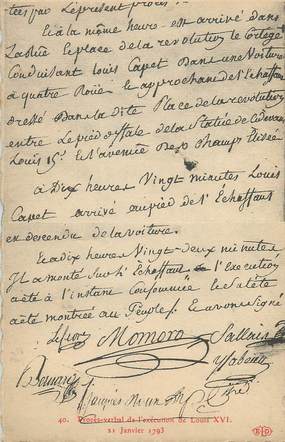 tées par le présent procès
Et à la même heure est arrivé dans
la Rue et place de la revolution le Cortege
Conduisant Louis Capet dans une Voiture
à quatre Roües et approchant de l'Echaffaut
dressé dans la dite Place de la revolution
entre le pied d'Estale de la Statüe de Cidevant
Louis 15e. et l'avenue des champs Elisée
à Dix heures Vingt minutes Louis
Capet arrivé au pied de l'Echaffaut
est descendu de la voiture.
Et a dix heures Vingt-deux minutes
Il a monté sur l'Echaffaut et l'Execution
a été à l'instant Consommée et Sa tête
a été montrée au Peuple. Et avons signé
Lefevre Momoro Sallais
Isabeau
Jacques Roux
40. Procès-verbal de l'exécution de Louis XVI.
21 Janvier 1793